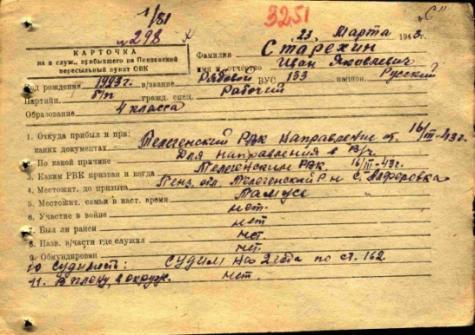 1/81
3251
"С"
№ 298 х
23 Марта 1943.
КАРТОЧКА
на в служ., прибывшего на Пензенский
пересыльный пункт ОВК
Фамилия Старехин
и отчество Иван Яковлевич
Год рождения 1903 г. в/звание Рядовой ВУС 133 национ. Русский
Партийн. б/п гражд. спец. Рабочий
Образование 4 класса
1. Откуда прибыл и при
каких документах Телегенский РВК направление от 16/III-43 г.
2. По какой причине Для направления в В/ч.
3. Каким РВК призван и когда Телегенским РВК 16/III-43 г.
4. Местожит. до призыва Пенз. обл. Телегенский Р-н с. Алферовка
5. Местожит. семьи в наст. время Тамже
6. Участие в войне нет.
7. Был ли ранен нет
8. Назв. в/части где служил нет.
9. Обмундирован нет.
10 судимость: Судим на 2 года по ст. 162
11. В плену, в окруж. нет.